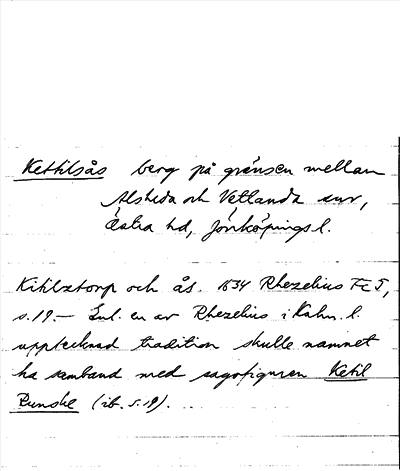 Kettilsås berg på gränsen mellan
Alsheda och Vetlanda snr,
Östra hd, Jönköpings l.
Kihlztorp och ås. 1634 Rhezelius FC 5,
s. 19. — Enl. en av Rhezelius i Kalm. l.
upptecknad tradition skulle namnet
ha samband med sagofiguren Ketil
Runske (ib. s. 19).